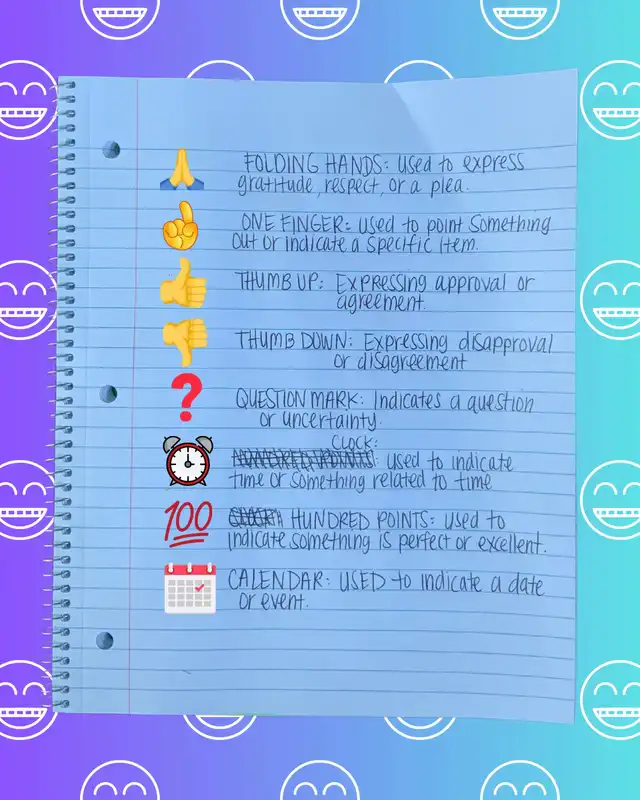 FOLDING HANDS: used to express
gratitude, respect, or a plea.
ONE FINGER: used to point something
out or indicate a specific item.
THUMB UP: Expressing approval or
agreement.
THUMB DOWN: Expressing disapproval
or disagreement
QUESTION MARK: Indicates a question
or uncertainty.
CLOCK:
: used to indicate
time or something related to time
A HUNDRED POINTS: used to
indicate something is perfect or excellent.
100
CALENDAR: USED to indicate a date
or event.